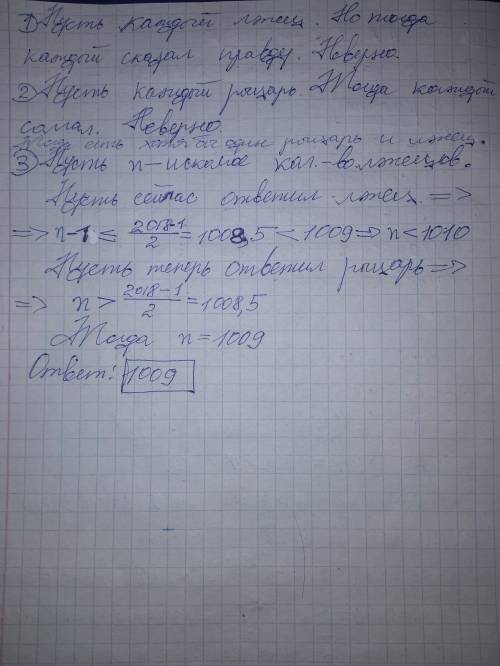 1) Пусть каждый лжец. Но тогда
каждый сказал правду. Неверно.
2) Пусть каждый рыцарь. Тогда каждый
солгал. Неверно.
Тогда есть хотя бы один рыцарь и лжец.
3) Пусть n – искомое кол-во лжецов.
Пусть сейчас ответил лжец =>
=> n-1 ≤ (2018-1)/2 = 1008,5 < 1009 => n < 1010
Пусть теперь ответил рыцарь =>
=> n > (2018-1)/2 = 1008,5
Тогда n = 1009
Ответ: 1009